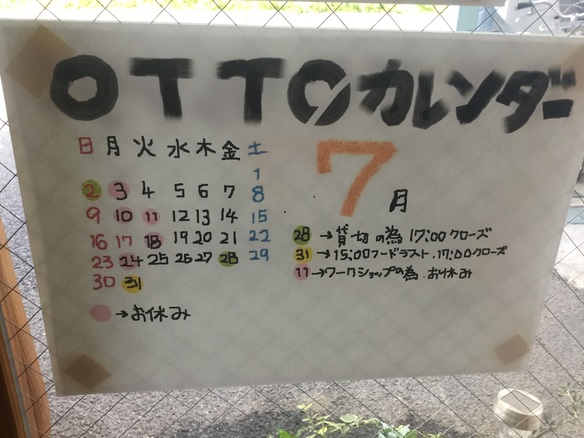 OTTOのカレンダー
7月
日 月 火 水 木 金 土
1
2 3 4 5 6 7 8
9 10 11 12 13 14 15
16 17 18 19 20 21 22
23 24 25 26 27 28 29
30 31
28 →貸切の為 17:00 クローズ
31 →15:00フードラスト.17:00クローズ
11 →ワークショップの為.お休み
→お休み